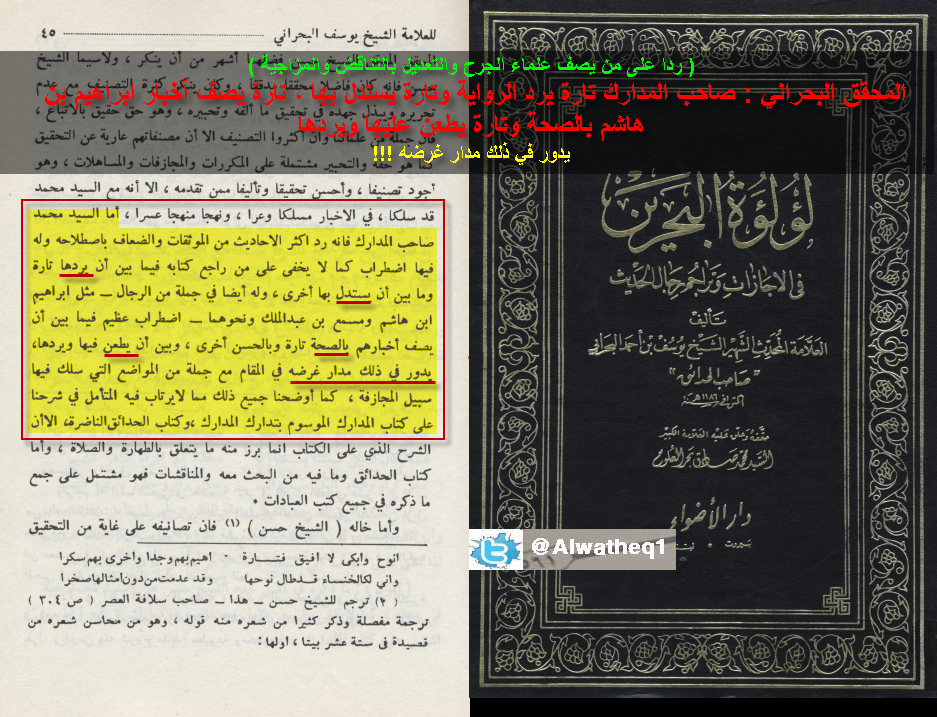 للعلامة الشيخ يوسف البحراني ٤٥
( ردا على من يصف علماء الجرح والتعديل بالتناقض والمزاجية )
المحقق البحراني : صاحب المدارك تارة يرد الرواية وتارة يستدل بها ، تارة يصف أخبار ابراهيم بن
هاشم بالصحة وتارة يطعن عليها ويردها
يدور في ذلك مدار غرضه !!!
أشهر من أن ينكر ، ولاسيما الشيخ
تحريره وبذل جهده في تحقيق ما ألفه وتحبيره ، وهو حق حقيق بالاتباع ،
وان أكثروا التصنيف الا أن مصنفاتهم عارية عن التحقيق
كما هو حقه والتحبير مشتملة على المكررات والمجازفات والمساهلات ، وهو
أجود تصنيفا ، وأحسن تحقيقا وتأليفا ممن تقدمه ، الا أنه مع السيد محمد
قد سلكا ، في الاخبار مسلكا وعرا ، ونهجا منهجا عسرا ، أما السيد محمد
صاحب المدارك فانه رد أكثر الاحاديث من الموثقات والضعاف باصطلاحه وله
فيها اضطراب كما لا يخفى على من راجع كتابه فيما بين أن يردها تارة
وما بين أن يستدل بها أخرى ، وله أيضا في جملة من الرجال ــ مثل ابراهيم
ابن هاشم ومسمع بن عبدالملك ونحوهما ــ اضطراب عظيم فيما بين أن
يصف أخبارهم بالصحة تارة وبالحسن أخرى ، وبين أن يطعن فيها ويردها،
يدور في ذلك مدار غرضه في المقام مع جملة من المواضع التي سلك فيها
سبيل المجازفة ، كما أوضحنا جميع ذلك مما لايرتاب فيه المتأمل في شرحنا
على كتاب المدارك الموسوم بتدارك المدارك ،وكتاب الحدائق الناضرة، الاأن
الشرح الذي على الكتاب انما برز منه ما يتعلق بالطهارة والصلاة ، وأما
كتاب الحدائق وما فيه من البحث معه والمناقشات فهو مشتمل على جمع
ما ذكره في جميع كتب العبادات .
وأما خاله ( الشيخ حسن ) (١) فان تصانيفه على غاية من التحقيق
انوح وابكى لا افيق فتــارة • اهيم بهم وجدا واخرى بهم سكرا
واني لكالخنساء قدطال نوحها • وقد عدمت من دون أمثالها صخرا
(٢) ترجم للشيخ حسن ــ هذا ــ صاحب سلافة العصر ( ص ٣٠٤ )
ترجمة مفصلة وذكر كثيرا من شعره منه قوله ، وهو من محاسن شعره من
قصيدة في ستة عشر بيتا ، اولها :
لؤلؤة البحرين
في الاجازات وتراجم رجال الحديث
تأليف
العلامة المحدث الشهير الشيخ يوسف بن أحمد البحراني
"صاحب الحدائق"
المتوفى ١١٨٦ هـ
حققه وعلق عليه العلامة الكبير
السيد محمد صادق بحر العلوم
دار الأضواء
بيروت
@Alwatheq1